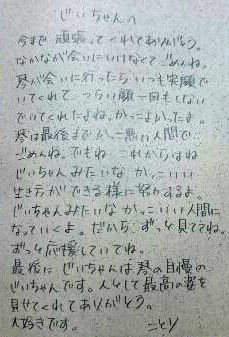 じいちゃんへ
今まで頑張ってくれてありがとう。
なかなか会いにいけなくてごめんね。
琴が会いに行ったらいつも笑顔で
いてくれて つらい顔一回もしない
でいてくれたよね。かっこよかったよ。
琴は最後までかっこ悪い人間で
ごめんね。でもね これからはね
じいちゃんみたいな かっこいい
生き方ができる様に努力するよ。
じいちゃんみたいな かっこいい人間に
なっていくよ。だから ずっと見ててね。
ずっと応援していてね。
最後に じいちゃんは琴の自慢の
じいちゃんです。人として最高の姿を
見せてくれてありがとう。
大好きです。 ことり